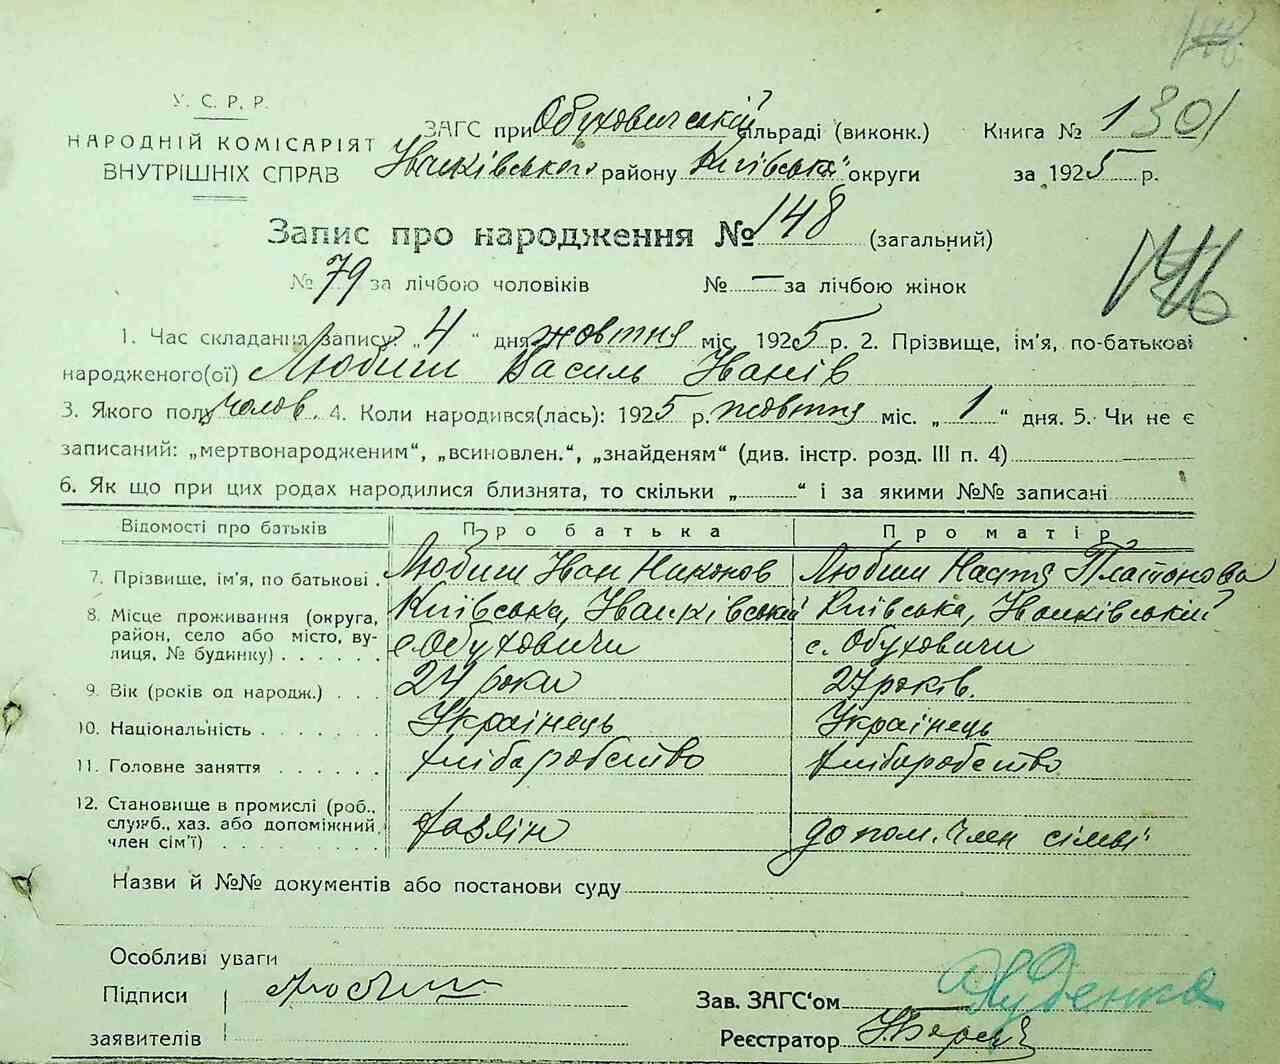 У. С. Р. Р.
НАРОДНІЙ КОМІСАРІЯТ
ВНУТРІШНІХ СПРАВ
ЗАГС при Обуховичській сільраді (виконк.) Книга № 1 301
Іванківського району Київська округи за 1925 р.
Запис про народження № 148 (загальний)
№ 79 за лічбою чоловіків № — за лічбою жінок
146
1. Час складання запису? „4“ дня жовтня міс. 1925 р. 2. Прізвище, ім'я, по-батькові
народженого(ої) Любиш Василь Іванів
3. Якого полу чолов. 4. Коли народився(лась): 1925 р. жовтня міс. „1“ дня. 5. Чи не є
записаний: „мертвонародженим“, „всиновлен.“, „знайденям“ (див. інстр. розд. III п. 4)
6. Як що при цих родах народилися близнята, то скільки „ “ і за якими №№ записані
Відомості про батьків Про батька Про матір
7. Прізвище, ім'я, по батькові . Любиш Іван Никонов Любиш Настя Платонова
8. Місце проживання (округа, район, село або місто, вулиця, № будинку) Київська, Іванківський с. Обуховичи Київська, Іванківській с. Обуховичи
9. Вік (років од народж.) 24 роки 27 років.
10. Національність Українець Українець
11. Головне заняття хліборобство хліборобство
12. Становище в промислі (роб., служб., хаз. або допоміжний член сім'ї) хазяїн допом. член сімьї
Назви й №№ документів або постанови суду
Особливі уваги
Підписи Любиш Зав. ЗАГС'ом
заявителів Реєстратор